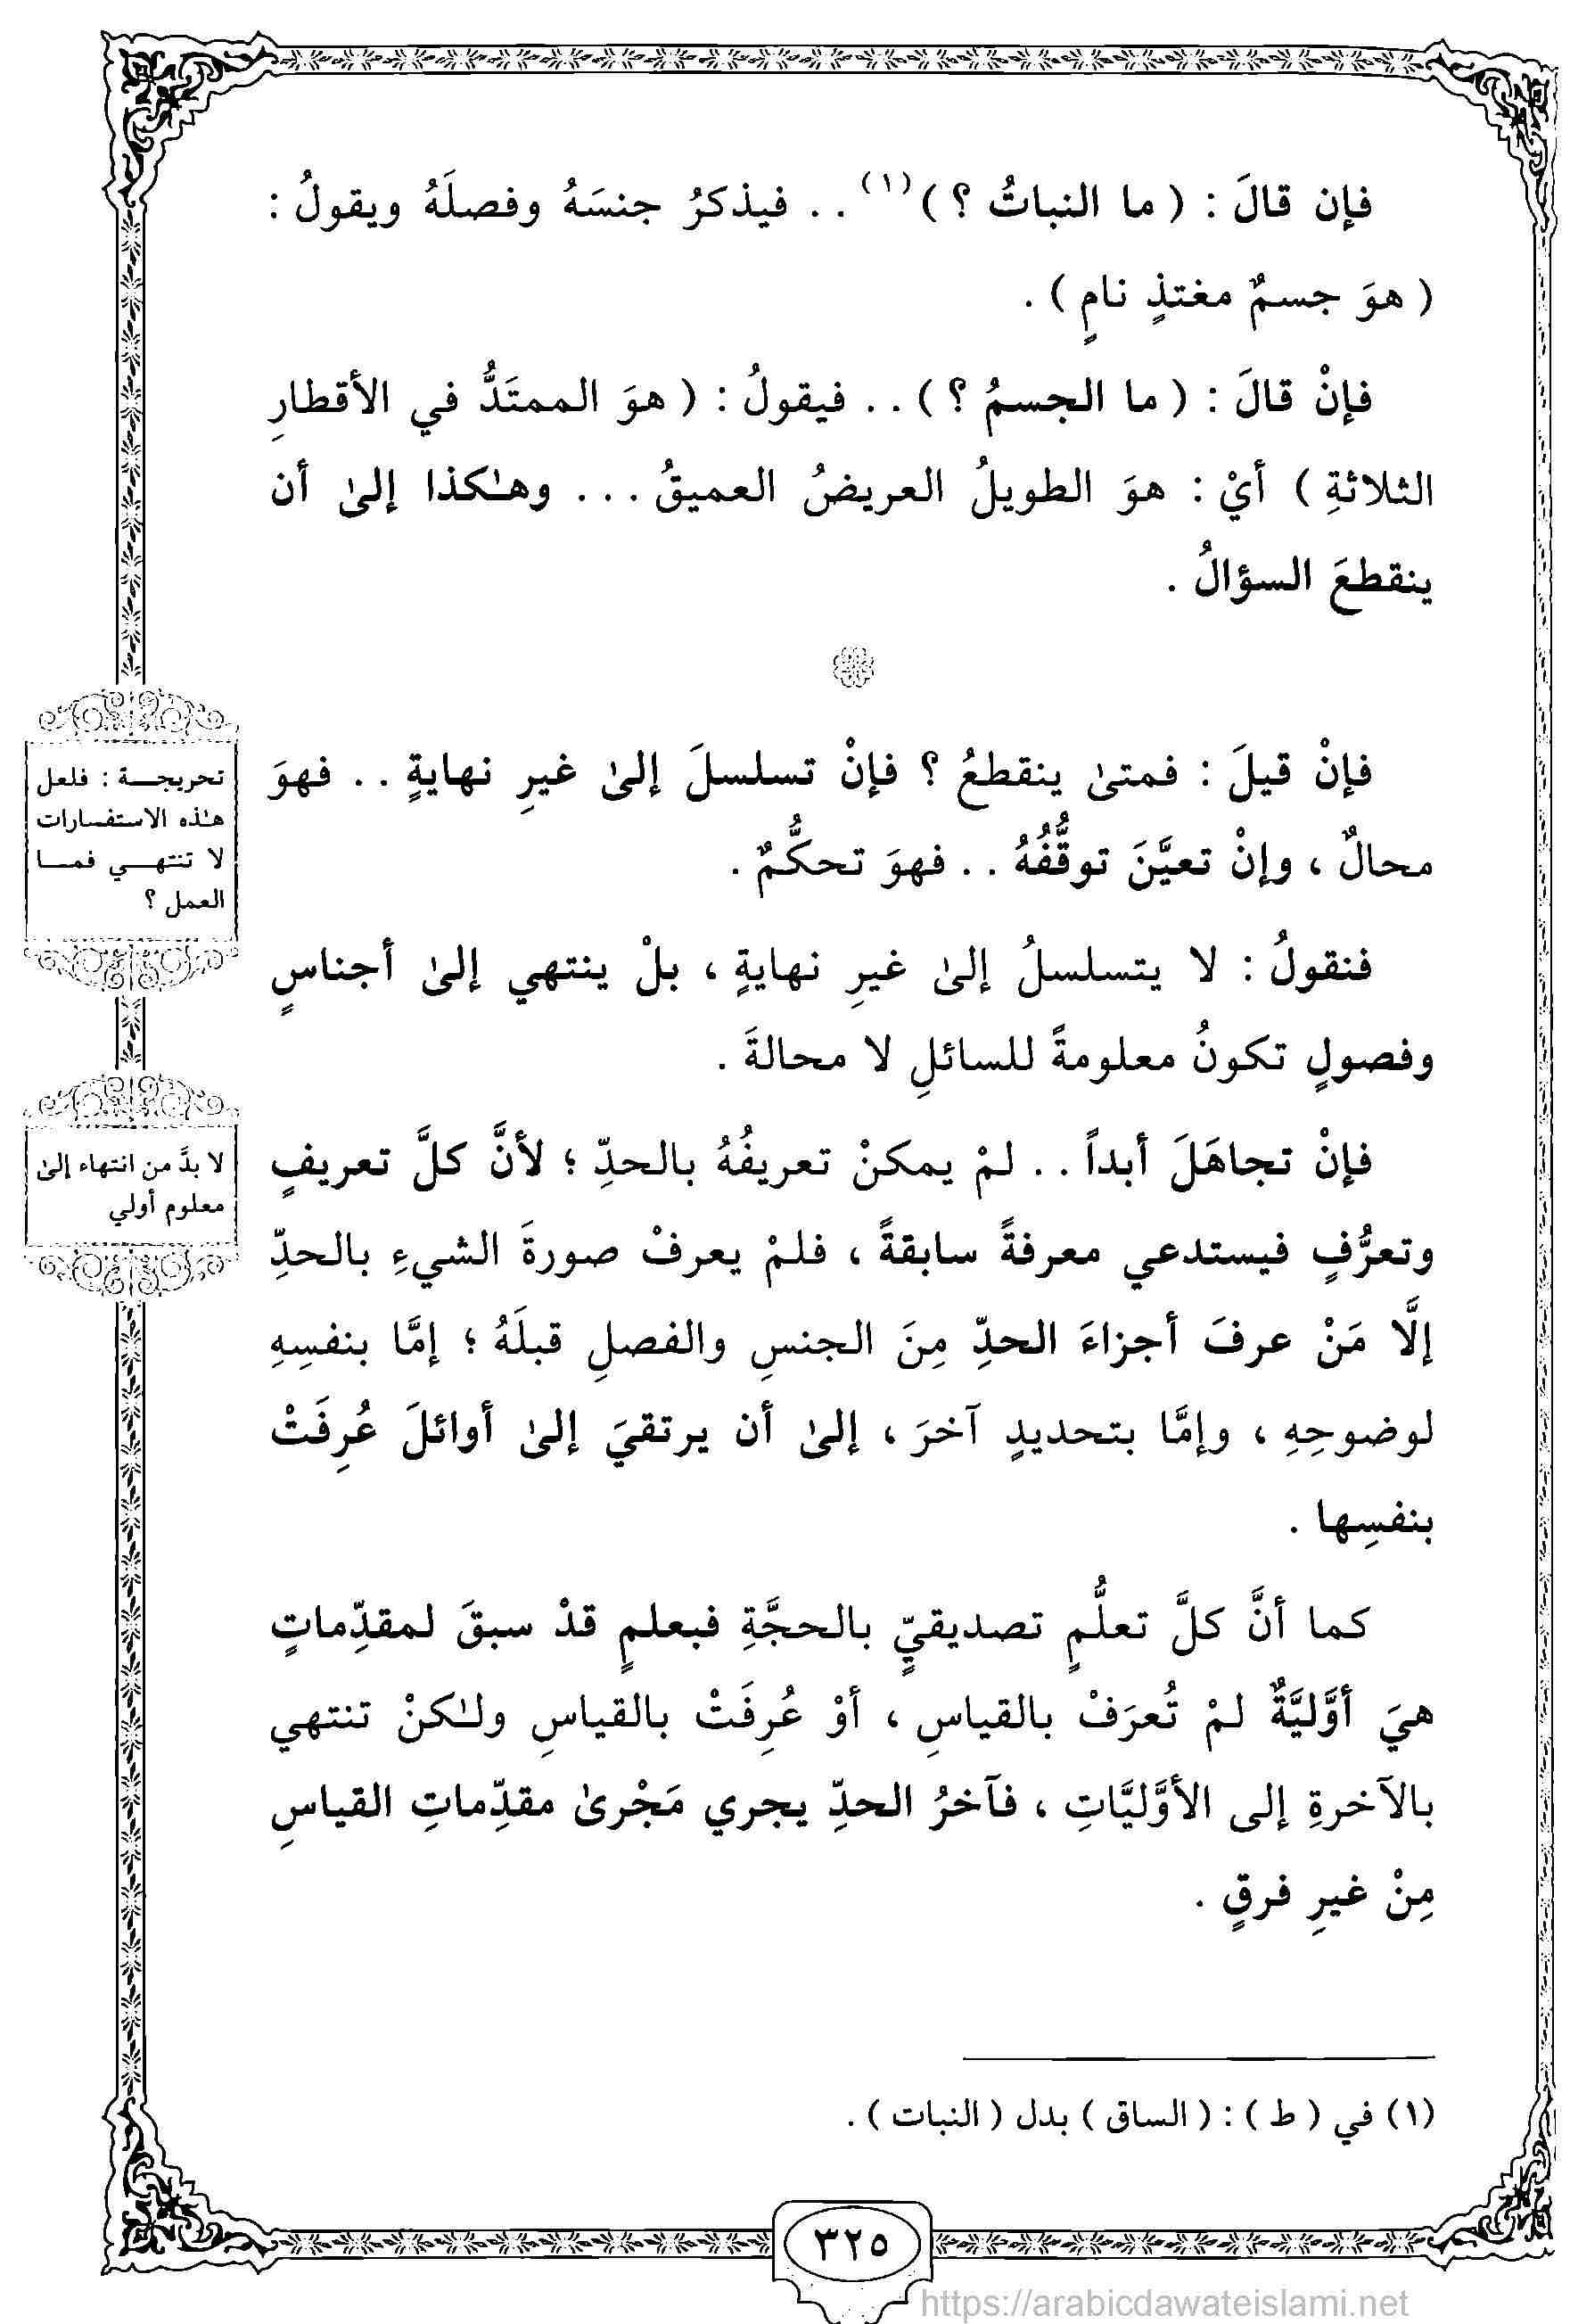 فإن قالَ : ( ما النباتُ ؟ )(١) . . فيذكرُ جنسَهُ وفصلَهُ ويقولُ :
( هوَ جسمٌ مغتذٍ نامٍ ) .
فإنْ قالَ : ( ما الجسمُ ؟ ) . . فيقولُ : ( هوَ الممتَدُّ في الأقطارِ
الثلاثةِ ) أيْ : هوَ الطويلُ العريضُ العميقُ . . . وهـٰكذا إلىٰ أن
ينقطعَ السؤالُ .
فإنْ قيلَ : فمتىٰ ينقطعُ ؟ فإنْ تسلسلَ إلىٰ غيرِ نهايةٍ . . فهوَ
محالٌ ، وإنْ تعيَّنَ توقُّفُهُ . . فهوَ تحكُّمٌ .
تحريجـة : فلعل
هـٰذه الاستفسارات
لا تنتهـي فمـا
العمل ؟
فنقولُ : لا يتسلسلُ إلىٰ غيرِ نهايةٍ ، بلْ ينتهي إلىٰ أجناسٍ
وفصولٍ تكونُ معلومةً للسائلِ لا محالةَ .
فإنْ تجاهَلَ أبداً . . لمْ يمكنْ تعريفُهُ بالحدِّ ؛ لأنَّ كلَّ تعريفٍ
وتعرُّفٍ فيستدعي معرفةً سابقةً ، فلمْ يعرفْ صورةَ الشيءِ بالحدِّ
إلَّا مَنْ عرفَ أجزاءَ الحدِّ مِنَ الجنسِ والفصلِ قبلَهُ ؛ إمَّا بنفسِهِ
لوضوحِهِ ، وإمَّا بتحديدٍ آخرَ ، إلىٰ أن يرتقيَ إلىٰ أوائلَ عُرِفَتْ
بنفسِها .
لا بدَّ من انتهاء إلىٰ
معلوم أولي
كما أنَّ كلَّ تعلُّمٍ تصديقيٍّ بالحجَّةِ فبعلمٍ قدْ سبقَ لمقدِّماتٍ
هيَ أوَّليَّةٌ لمْ تُعرَفْ بالقياسِ ، أوْ عُرِفَتْ بالقياسِ ولـٰكنْ تنتهي
بالآخرةِ إلى الأوَّليَّاتِ ، فآخرُ الحدِّ يجري مَجْرىٰ مقدِّماتِ القياسِ
مِنْ غيرِ فرقٍ .
(١) في ( ط ) : ( الساق ) بدل ( النبات ) .
٣٢٥
https://arabicdawateislami.net